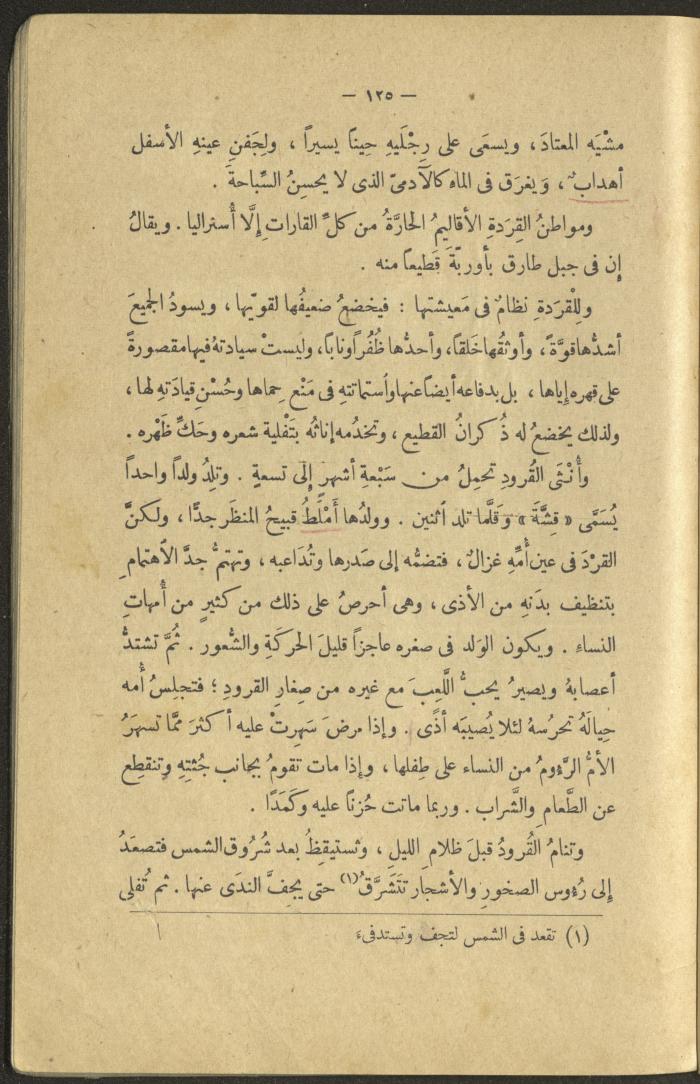 — ١٢٥ —
مشْيَه المعتادَ ، ويسعَى على رِجْلَيهِ حِيناً يسيراً ، ولِجَفنِ عينهِ الأسفل
أهدابٌ ، وَيغرَق فى الماء كالآدمىّ الذى لا يحسِنُ السِّباحةَ .
ومواطنُ القِرَدةِ الأقاليمُ الحارَّةُ من كلِّ القارات إِلَّا أُسترالیا . ويقالُ
إن فى جبل طارق بأوربّةَ قَطيعاً منه .
وللْقرَدةِ نظامٌ فى مَعيشتها : فيخضعُ ضعيفُها لقويّها ، ويسودُ الجميعَ
أشدُّها قوَّةً ، وأوثقُها خَلقاً ، وأحدُّها ظُفُراً ونابا ، وليستْ سيادتهُ فيها مقصورةً
على قهره إياها ، بل بدفاعه أيضاً عنها واُستماتتهِ فى مَنْع حِماها وحُسْنِ قيادَتهِ لها ،
ولذلك يخضعُ له ذُكرانُ القطيع ، وتخدُمه إناثُه بتَفْلية شعره وحَكِّ ظَهْره .
وأُنْثَى القُرودِ تحمِلُ من سَبْعةِ أشهرٍ إلَى تسعةٍ . وتلِدُ ولداً واحداً
يُسَمَّى « قِشَّةَ » وَقَلَّما تلد اُثنين . وولدُها أَمْلَطُ قبيحُ المنظَر جدًّا ، ولكنَّ
القرْدَ فى عين أُمِّهِ غزالٌ ، فتضمُّه إلى صَدرها وتُدَاعبه ، وتهتمُّ جدَّ اُلاهتمامِ
بتنظيف بدَنهِ من الأذى ، وهى أحرصُ على ذلك من كثيرٍ من أُمهاتِ
النساءِ . ويكون الوَلد فى صغره عاجزاً قليلَ الحركَةِ والشُّعور . ثُمَّ تشتدُّ
أعصابهُ ويصيرُ يحبُّ اللَّعِبَ مع غيره من صِغارِ القرودِ ؛ فتجلسُ أُمه
حِيالَهُ تحرُسهُ لئلا يُصيبَه أذًى . وإذا مرضَ سَهِرتْ عليه أكثرَ ممَّا تسهَرُ
الأمُّ الرَّءُومُ من النساء على طِفلها ، وإذا مات تقومُ بجانب جُثتِهِ وتنقطِع
عن الطَّعامِ والشَّراب . وربما ماتت حُزنا عليه وكَمَدًا .
وتنامُ القُرودُ قبلَ ظلامِ الليل ، وتستيقظُ بعد شُرُوق الشمس فتصعَدُ
إلى رُءُوس الصخورِ والأشجار تتَشَرَّقُ(١) حتى يجِفَّ الندَى عنها . ثم تُفلى
(١) تقعد فى الشمس لتجف وتستدفىء